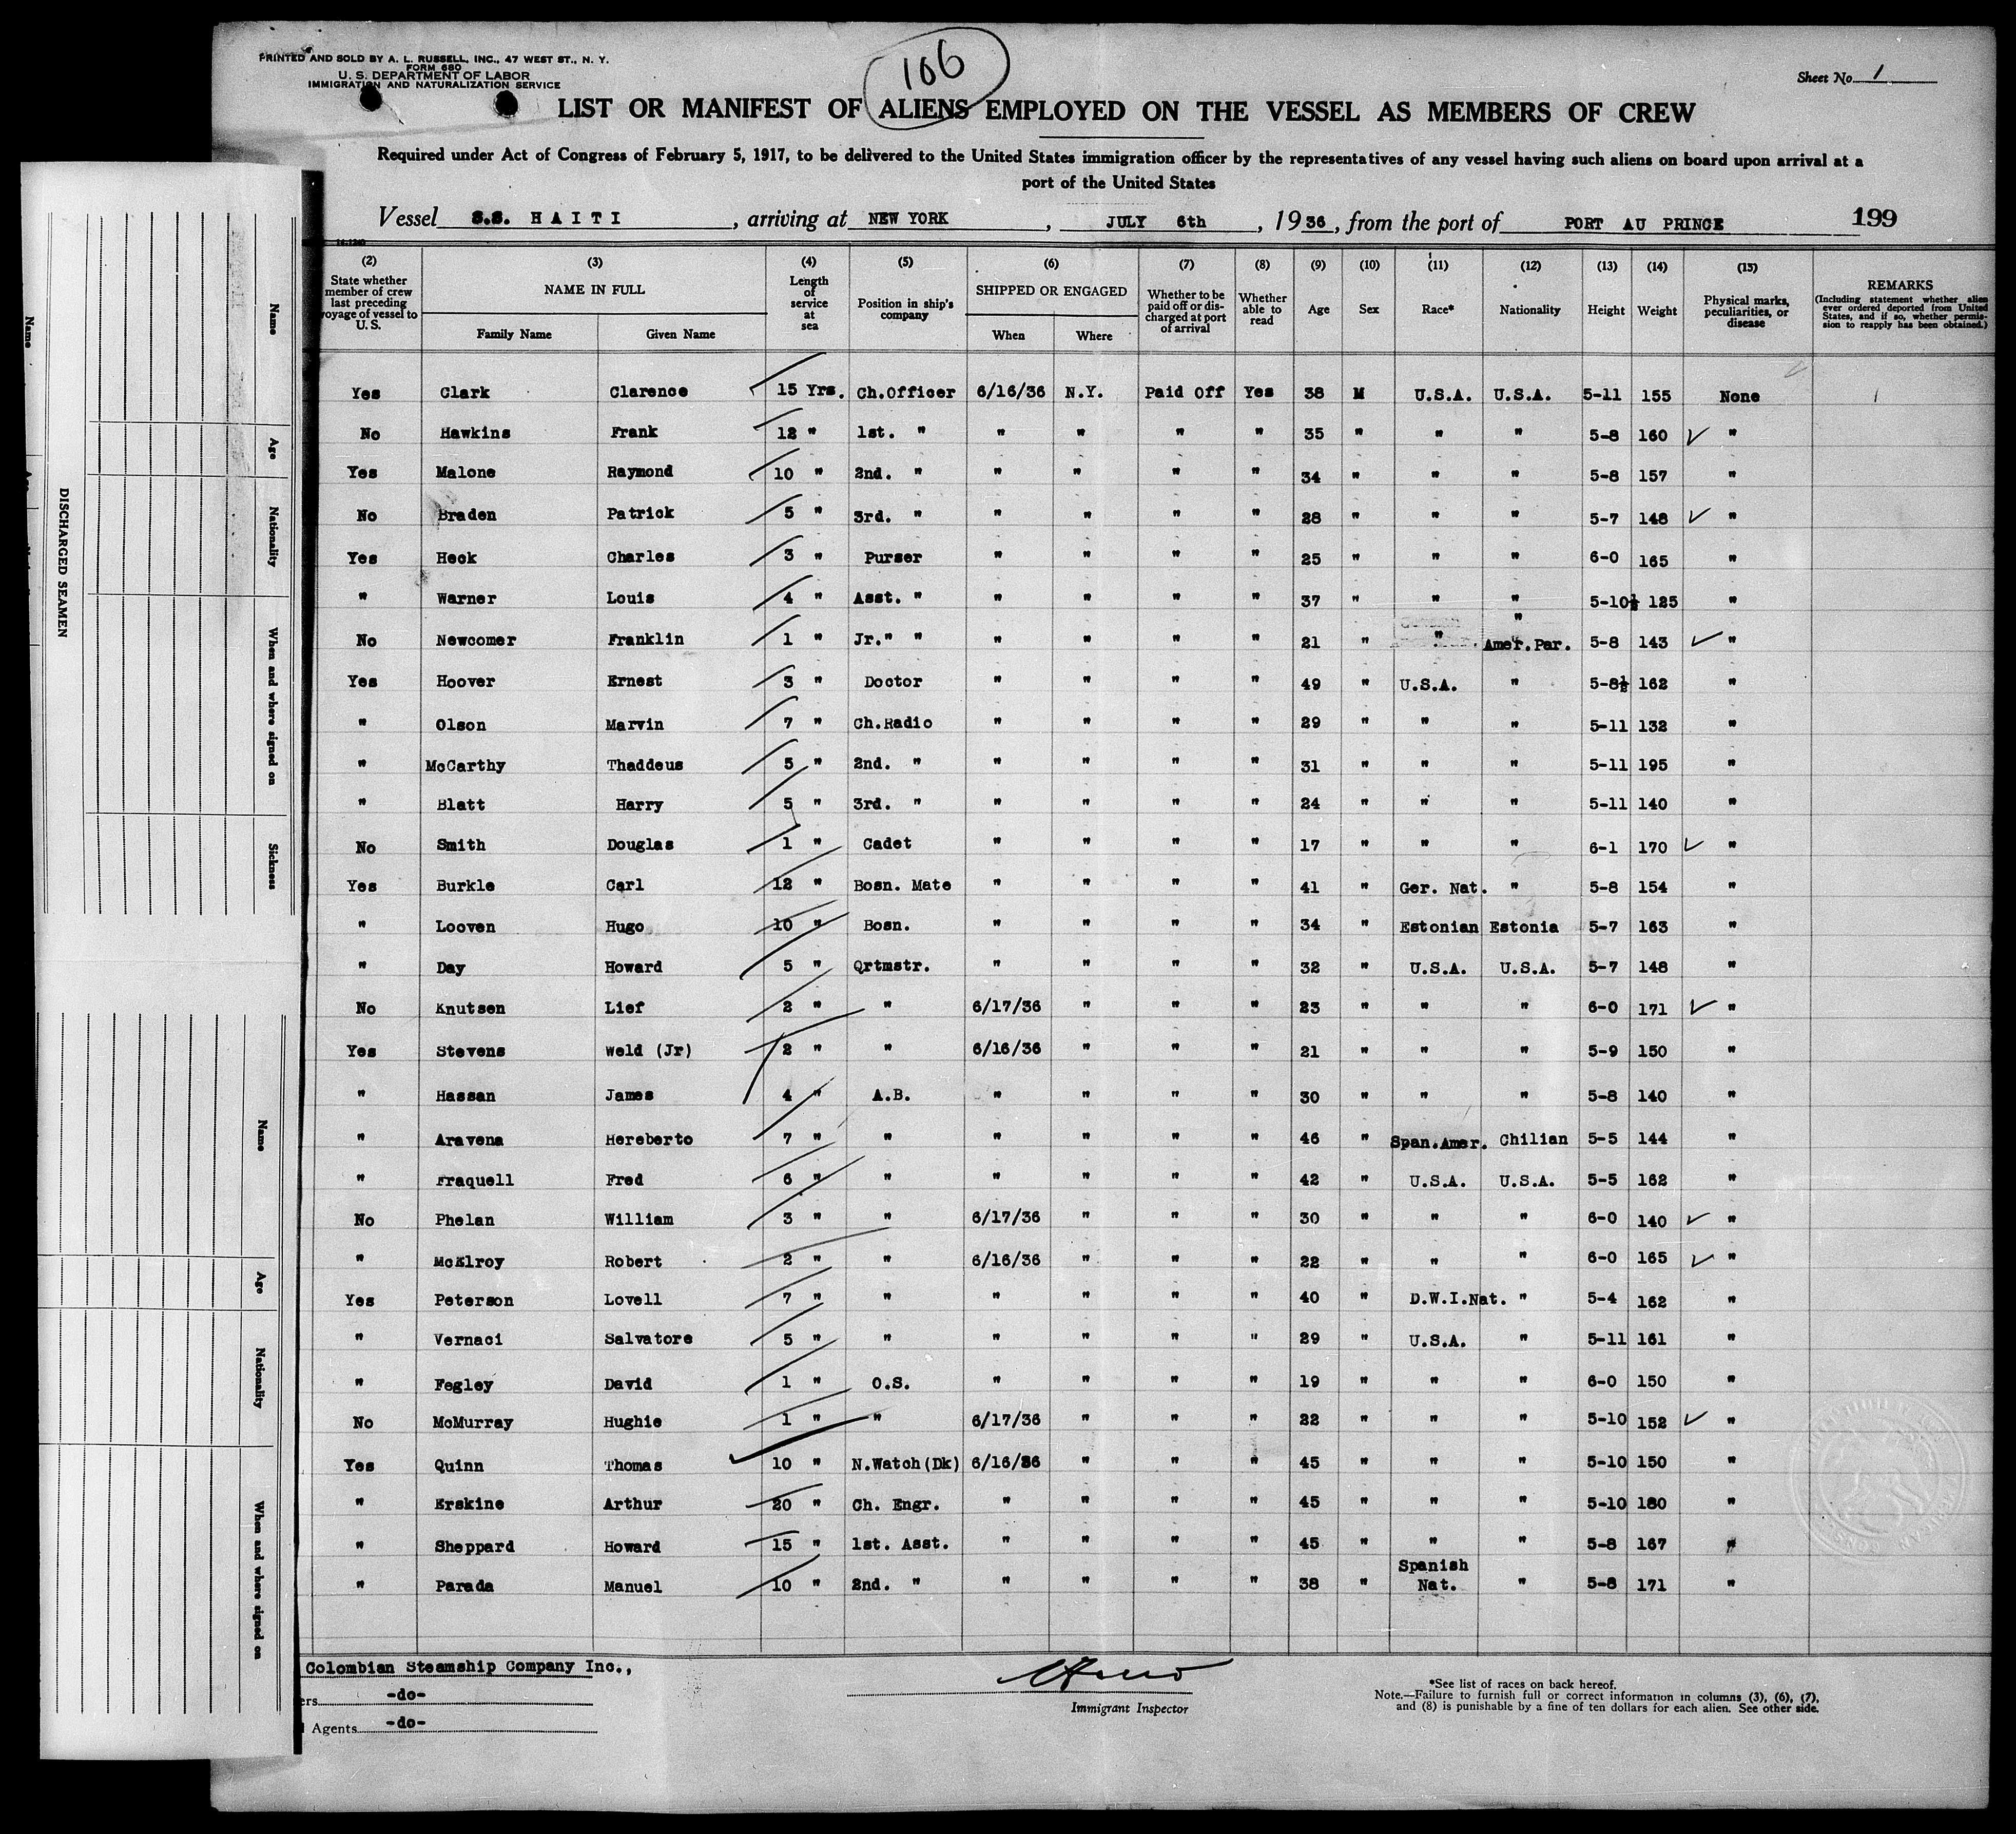 PRINTED AND SOLD BY A. L. RUSSELL, INC., 47 WEST ST., N. Y.
FORM 680
U. S. DEPARTMENT OF LABOR
IMMIGRATION AND NATURALIZATION SERVICE
106
Sheet No. 1
LIST OR MANIFEST OF ALIENS EMPLOYED ON THE VESSEL AS MEMBERS OF CREW
Required under Act of Congress of February 5, 1917, to be delivered to the United States immigration officer by the representatives of any vessel having such aliens on board upon arrival at a
port of the United States
Vessel S.S. HAITI, arriving at NEW YORK, JULY 6th, 1936, from the port of PORT AU PRINCE 199
(2) State whether member of crew last preceding voyage of vessel to U.S.
(3) NAME IN FULL Family Name Given Name
(4) Length of service at sea
(5) Position in ship's company
(6) SHIPPED OR ENGAGED When Where
(7) Whether to be paid off or discharged at port of arrival
(8) Whether able to read
(9) Age
(10) Sex
(11) Race*
(12) Nationality
(13) Height
(14) Weight
(15) Physical marks, peculiarities, or disease
REMARKS (Including statement whether alien ever ordered deported from United States, and if so, whether permission to reapply has been obtained.)
Yes Clark Clarence 15 Yrs. Ch.Officer 6/16/36 N.Y. Paid Off Yes 38 M U.S.A. U.S.A. 5-11 155 None
No Hawkins Frank 12 " 1st. " " " " " 35 " " " 5-8 160 "
Yes Malone Raymond 10 " 2nd. " " " " " 34 " " " 5-8 157 "
No Braden Patrick 5 " 3rd. " " " " " 28 " " " 5-7 148 "
Yes Heck Charles 3 " Purser " " " " 25 " " " 6-0 165 "
" Warner Louis 4 " Asst. " " " " " 37 " " " 5-10½ 125 "
No Newcomer Franklin 1 " Jr." " " " " " 21 " " " Amer.Par. 5-8 143 "
Yes Hoover Ernest 3 " Doctor " " " " 49 " U.S.A. " 5-8½ 162 "
" Olson Marvin 7 " Ch.Radio " " " " 29 " " " 5-11 132 "
" McCarthy Thaddeus 5 " 2nd. " " " " " 31 " " " 5-11 195 "
" Blatt Harry 5 " 3rd. " " " " " 24 " " " 5-11 140 "
No Smith Douglas 1 " Cadet " " " " 17 " " " 6-1 170 "
Yes Burkle Carl 12 " Bosn. Mate " " " " 41 " Ger. Nat. " 5-8 154 "
" Looven Hugo 10 " Bosn. " " " " 34 " Estonian Estonia 5-7 163 "
" Day Howard 5 " Qrtmstr. " " " " 32 " U.S.A. U.S.A. 5-7 148 "
No Knutsen Lief 2 " " 6/17/36 " " " 23 " " " 6-0 171 "
Yes Stevens Weld (Jr) 2 " " 6/16/36 " " " 21 " " " 5-9 150 "
" Hassan James 4 " A.B. " " " " 30 " " " 5-8 140 "
" Aravena Hereberto 7 " " " " " " 46 " Span.Amer. Chilian 5-5 144 "
" Fraquell Fred 6 " " " " " " 42 " U.S.A. U.S.A. 5-5 162 "
No Phelan William 3 " " 6/17/36 " " " 30 " " " 6-0 140 "
" McElroy Robert 2 " " 6/16/36 " " " 22 " " " 6-0 165 "
Yes Peterson Lovell 7 " " " " " " 40 " D.W.I.Nat. " 5-4 162 "
" Vernaci Salvatore 5 " " " " " " 29 " U.S.A. " 5-11 161 "
" Fegley David 1 " O.S. " " " " 19 " " " 6-0 150 "
No McMurray Hughie 1 " " 6/17/36 " " " 22 " " " 5-10 152 "
Yes Quinn Thomas 10 " N.Watch(Dk) 6/16/36 " " " 45 " " " 5-10 150 "
" Erskine Arthur 20 " Ch. Engr. " " " " 45 " " " 5-10 180 "
" Sheppard Howard 15 " 1st. Asst. " " " " 45 " " " 5-8 167 "
" Parada Manuel 10 " 2nd. " " " " " 38 " Spanish Nat. " 5-8 171 "
Colombian Steamship Company Inc.,
-do-
Agents -do-
Immigrant Inspector
*See list of races on back hereof.
Note.—Failure to furnish full or correct information in columns (3), (6), (7),
and (8) is punishable by a fine of ten dollars for each alien. See other side.
DISCHARGED SEAMEN
Name
Age
Nationality
When and where signed on
Sickness
Name
Age
Nationality
When and where signed on
Name